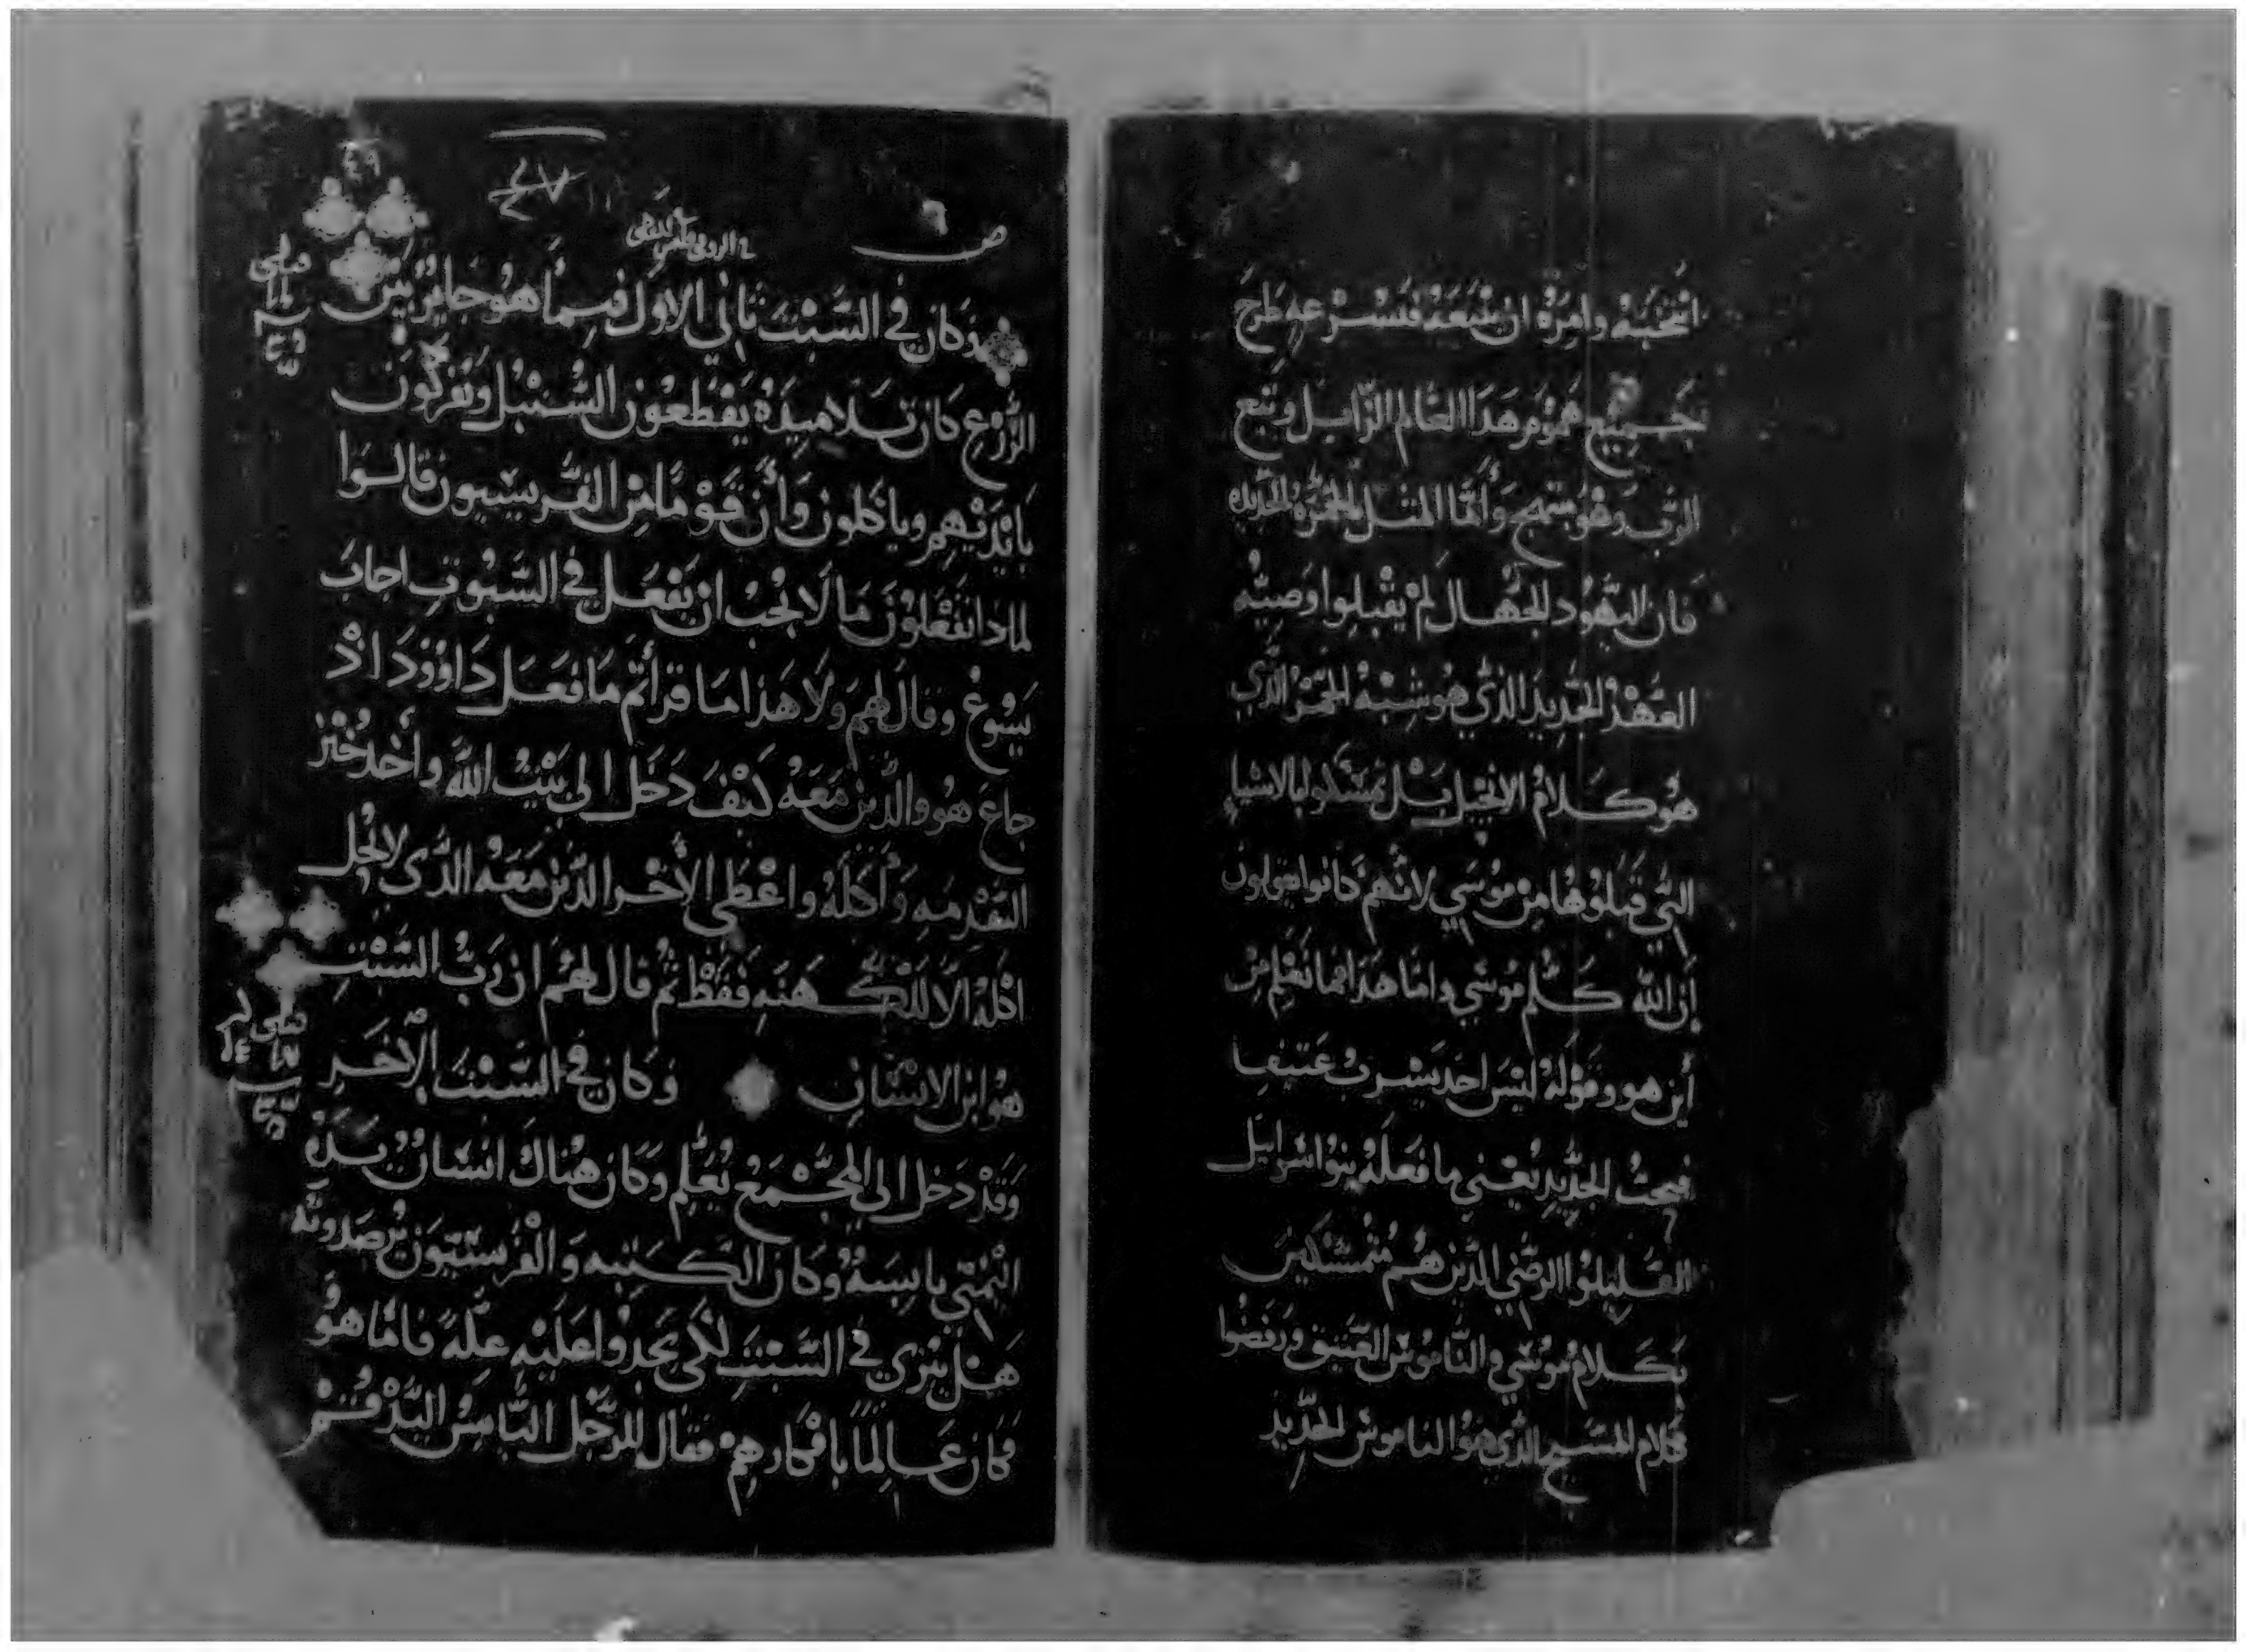 انتخبه وامره ان يتبعه فبسرعه طرح
جميع هموم هدا العالم الزايل وتبع
الرب وهو بتهج وأيما المثل الخمره الجديده
فان اليهود الجهال لم يقبلوا وصيته
العهد الجديد الذي هو شبه الخمر الذي
هو كلام الانجيل بل تمسكوا بالاشيا
التي قبلوها من موسي لانهم كانوا يقولون
إن الله كلم موسي واما هذا فما نعلم من
أين هو وقوله ليس احد يشرب عتيقا
فيحب الجديد يعني ما فعله بنوا اسراييل
القليلوا الرضي الذين هم متمسكين
بكلام موسي والناموس العتيق ورفضوا
كلام المسيح الذي هو الناموس الجديد
ص ٦
٤٧
٤٦
وكان في السبت تاني الاول فيما هو جايز بين
الزرع كان تلاميذه يقطعون السنبل ويفركون
بايديهم وياكلون وأن قوما من الفريسيون قالوا
لمادا تفعلون ما لا يجب ان يفعل في السبوت اجاب
يسوع وقال لهم ولا هذا ما قرأتم ما فعل داوود اد
جاع هو والذين معه كيف دخل الي بيت الله وأخد خبز
التقدمه وأكله واعطي الأخر الذين معه الذي لا يحل
اكله الا للكهنه فقط ثم قال لهم ان رب السبت
هو ابن الانسان وكان في السبت الآخر
وقد دخل الي المجمع يعلم وكان هناك انسان يده
اليمني يابسه وكان الكتبه والفريسيون يرصدونه
هل يبري في السبت لكي يجدوا عليه علة فاما هو
فكان عالما بافكارهم فقال للرجل اليابس اليد قم